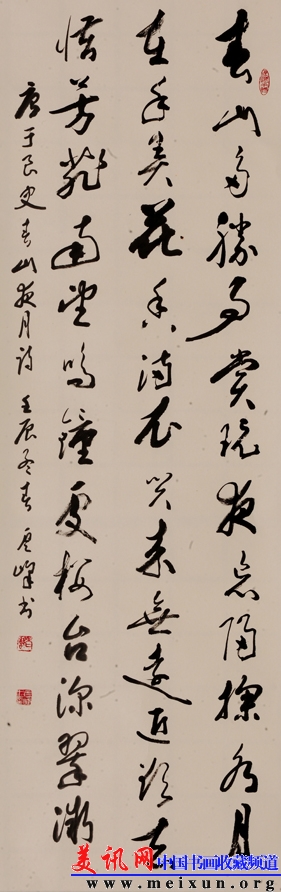 春山多勝事賞玩夜忘歸掬水月
在手弄花香满衣興来無遠近欲去
惜芳菲南望鳴鐘處楼台深翠微
唐于良史春山夜月诗 壬辰 春 峰书
美讯网 中国书画收藏频道
www.meixun.org